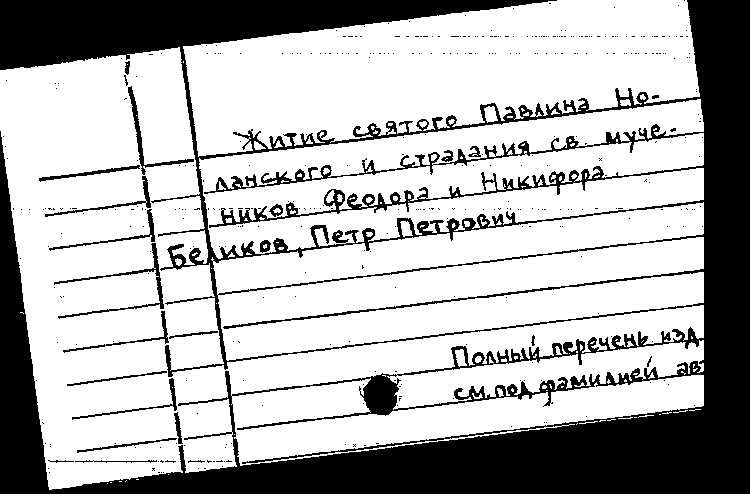 Житие святого Павлина Но-
ланского и страдания св. муче-
ников Феодора и Никифора.
Беликов, Петр Петрович
Полный перечень изд
см. под фамилией ав